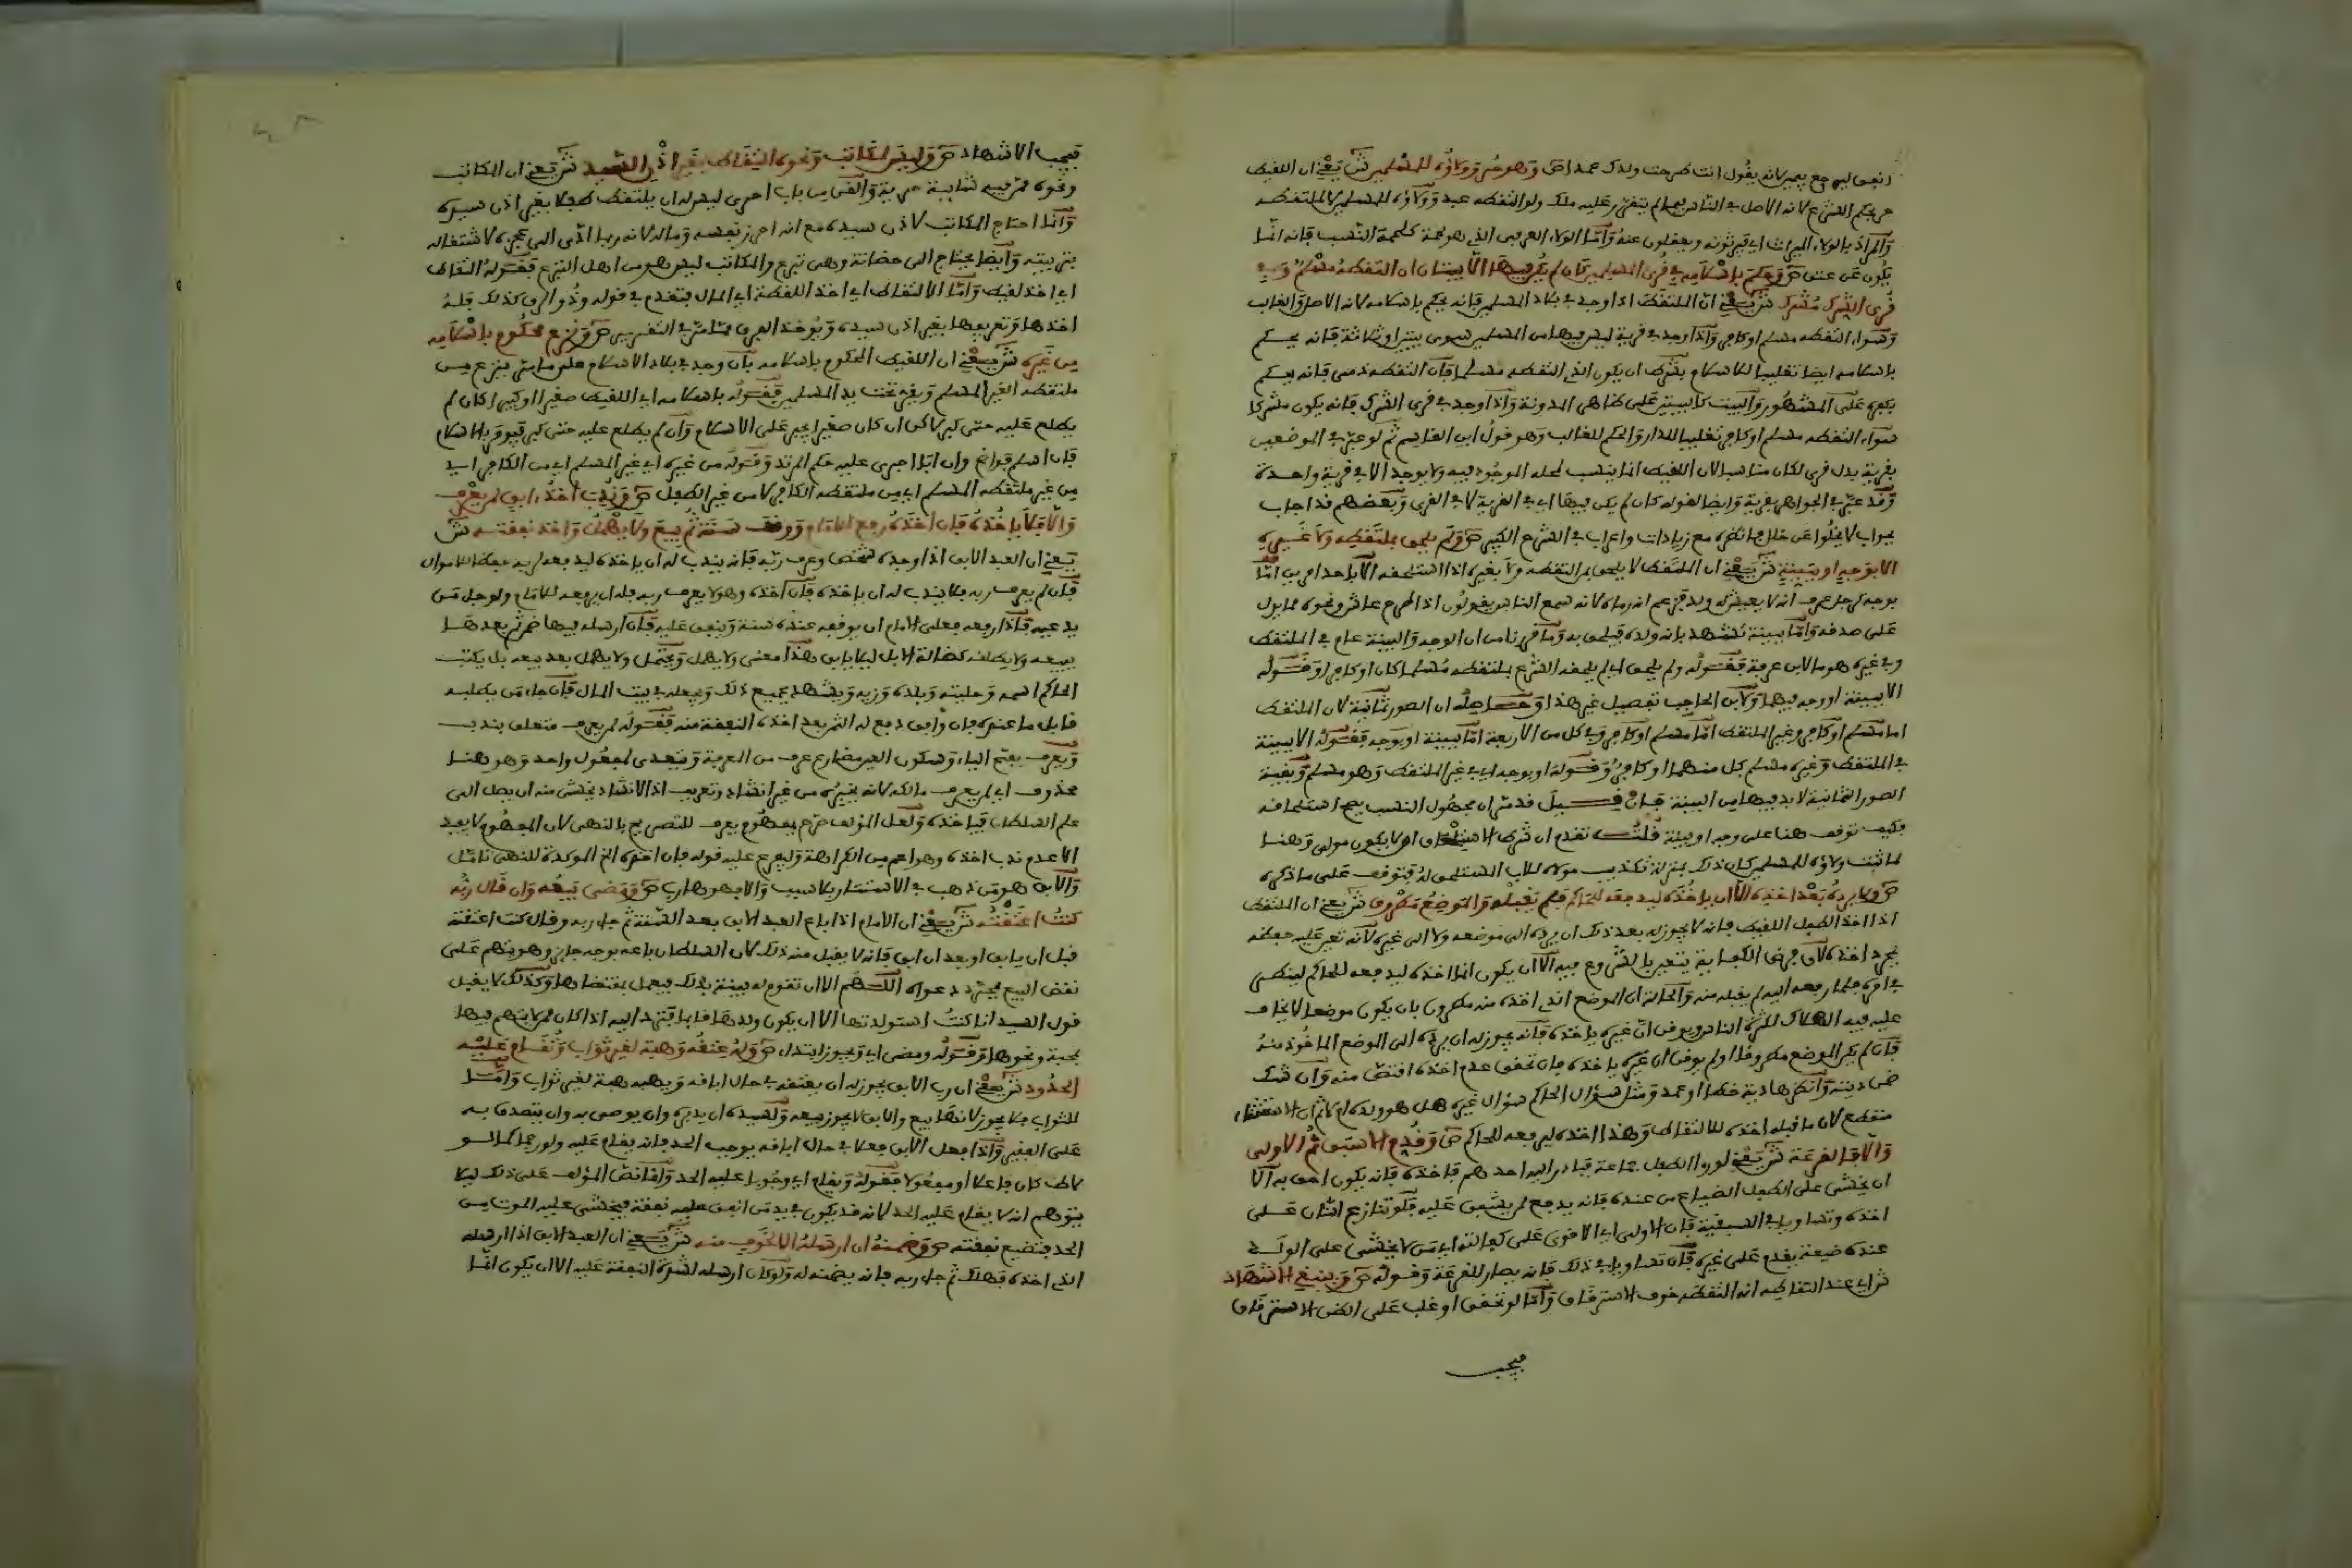 انفق ليرجع يعني لانه يقول انت طرحت ولدك عمدا ص وهو حر وولاؤه للمسلمين ش يعني ان اللقيط
حر بحكم الشرع لانه الاصل في الناس ما لم يتقرر عليه ملك ولو التقطه عبد وولاؤه للمسلمين لا لملتقطه
والمراد بالولاء الميراث اي يرثونه ويعقلون عنه واما الولاء العرفي الذي هو لحمة كلحمة النسب فانه انما
يكون عن عتق ص وحكم باسلامه في قرى المسلمين كان لم يكن فيها الا بيتان ان التقطه مسلم وفي
قرى الشرك مشرك ش يعني ان الملتقط اذا وجد في بلاد المسلمين فانه يحكم باسلامه لانه الاصل والغالب
وسواء التقطه مسلم او كافر واذا وجد في قرية ليس فيها من المسلمين سوى بيتين او ثلاثة فانه يحكم
باسلامه ايضا تغليبا للاسلام بشرط ان يكون الذي التقطه مسلما فان التقطه ذمي فانه يحكم
بكفره على المشهور والبيت كالبيتين على ظاهر المدونة واذا وجد في قرى الشرك فانه يكون مشركا
سواء التقطه مسلم او كافر تغليبا للدار والحكم للغالب وهو قول ابن القاسم ثم لو عبر في الموضعين
بقرية بدل قرى لكان مناسبا لان اللقيط انما ينسب لمحله الموجود فيه ولا يوجد الا في قرية واحدة
وقد عبر في الجواهر بقرية وايضا لقوله كان لم يكن فيها اي في القرية لا في القرى وبعضهم قد اجاب
بجواب لا يخلوا عن خلل فانظره مع زيادات واعراب في الشرح الكبير ص ولم يلحق بملتقطه ولا غيره
الا بوجه او ببينة ش يعني ان الملتقط لا يلحق بمن التقطه ولا بغيره اذا استلحقه الا باحد امرين اما
بوجه كرجل عرف انه لا يعيش له ولد فزعم انه رماه لانه سمع الناس يقولون اذا طرح عاش ونحوه مما يدل
على صدقه واما ببينة تشهد بانه ولده فيلحق به وما قررنا من ان الوجه والبينة عام في الملتقط
وفي غيره هو ما لابن عرفة فقوله ولم يلحق اي لم يلحقه الشرع بملتقطه مسلما كان او كافرا وقوله
الا ببينة او وجه فيهما ولابن الحاجب تفصيل غير هذا وحاصله ان الصور ثمانية لان الملتقط
اما مسلم او كافر وغير الملتقط اما مسلم او كافر وفي كل من الاربعة اما ببينة او بوجه فقوله الا ببينة
في الملتقط وغيره مسلم كل منهما او كافر وقوله او بوجه اي في غير الملتقط وهو مسلم وبقية
الصور الثمانية لا بد فيها من البينة فان قيل قد مر ان مجهول النسب يصح استلحاقه
فكيف توقف هنا على وجه او بينة قلت تقدم ان شرط الاستلحاق ان لا يكون مولى وهنا
لما ثبت ولاؤه للمسلمين كان ذلك بمنزلة تكذيب مولاه للاب المستلحق له فتوقف على ما ذكره
ص ولا يرده بعد اخذه الا ان ياخذه ليدفعه للحاكم فلم يقبله والموضع مطروق ش يعني ان الملتقط
اذا اخذ الطفل اللقيط فانه لا يجوز له بعد ذلك ان يرده الى موضعه ولا الى غيره لانه تعين عليه حفظه
بمجرد اخذه لان فرض الكفاية يتعين بالشروع فيه الا ان يكون انما اخذه ليدفعه للحاكم لينظر
في امره فلما رفعه اليه لم يقبله منه والحالة ان الموضع الذي اخذه منه مطروق بان يكون موضعا لا يخاف
عليه فيه الهلاك لكثرة الناس ويوقن ان غيره ياخذه فانه يجوز له ان يرده الى الموضع الماخوذ منه
فان لم يكن الموضع مطروقا او لم يوقن ان غيره ياخذه فان تحقق عدم اخذه اقتص منه وان شك
ضمن ديته وانظر هل دية خطا او عمد ومثل سؤال الحاكم سؤال غيره هل هو ولده ام لا ثم ان الاستثناء
منقطع لان ما قبله اخذه للالتقاط وهذا اخذه ليرفعه للحاكم ص وقدم الاسبق ثم الاولى
والا فالقرعة ش يعني لو راو الطفل جماعة فبادر اليه احدهم فاخذه فانه يكون احق به الا
ان يخشى على الطفل الضياع من عنده فانه يدفع لمن يشفق عليه فلو تنازع اثنان على
اخذه وتساويا في السبقية فان الاولى اي الاقوى على كفالته اي من لا يخشى على الولد
عنده ضيعة يقدم على غيره فان تساويا في ذلك فانه يصار للقرعة وقوله ص وينبغي الاشهاد
ش اي عند التقاطه انه التقطه خوف الاسترقاق واما لو تحقق او غلب على الظن الاسترقاق
فيجب
فيجب الاشهاد ص وليس لمكاتب ونحوه التقاط بغير اذن السيد ش يعني ان المكاتب
ونحوه ممن فيه شايبة حرية والقن من باب احرى ليس له ان يلتقط طفلا بغير اذن سيده
وانما احتاج المكاتب لاذن سيده مع انه احرز نفسه وماله لانه ربما ادى الى عجزه لاشتغاله
بتربيته وايضا يحتاج الى حضانة وهي تبرع والمكاتب ليس هو من اهل التبرع فقوله التقاط
اي اخذ لقيط واما الالتقاط اي اخذ اللقطة اي المال فتقدم في قوله وذو الرق كذلك فله
اخذها وتعريفها بغير اذن سيده ويؤخذ الفرق مما مر في التقرير ص ونزع محكوم باسلامه
من غيره ش يعني ان اللقيط المحكوم باسلامه بان وجد في بلاد الاسلام على ما مر ينزع من
ملتقطه الغير المسلم ويقر تحت يد المسلمين فقوله باسلامه اي اللقيط صغيرا او كبيرا كان لم
يطلع عليه حتى كبر لاكن ان كان صغيرا يجبر على الاسلام وان لم يطلع عليه حتى كبر فيومر بالاسلام
فان اسلم فواضح وان ابا اجري عليه حكم المرتد وقوله من غيره اي غير المسلم اي من الكافر اي
من غير ملتقطه المسلم اي من ملتقطه الكافر لا من غير الطفل ص وندب اخذ ابق لمن يعرف
والا فلا ياخذه فان اخذه رفع للامام ووقف سنة ثم بيع ولا يهمل واخذ نفقته ش
يعني ان العبد الابق اذا وجده شخص وعرف ربه فانه يندب له ان ياخذه ليدفعه لربه حفظا للاموال
فان لم يعرف ربه فلا يندب له ان ياخذه فان اخذه وهو لا يعرف ربه فله ان يرفعه للامام ولو جاء من
يدعيه فاذا رفعه فعلى الامام ان يوقفه عنده سنة وينفق عليه فان ارسله فيها ضمن ثم بعدها
يبيعه ولا يطلقه كضالة الابل ليلا يابق هذا معنى ولا يهمل ويحتمل ولا يهمل بعد بيعه بل يكتب
الحاكم اسمه وحليته وبلده وربه ويشهد على جميع ذلك ويجعله في بيت المال فان جاء من يطلبه
قابل ما عنده فان وافق دفع له الثمن بعد اخذه النفقة منه فقوله لمن يعرف متعلق بندب
ويعرف بفتح الياء وسكون العين مضارع عرف من العرفة ويتعدى لمفعول واحد وهو هنا
محذوف اي لمن يعرف مالكه لانه يخبره من غير انشاد وتعريف اذ الانشاد يخشى منه ان يصل الى
علم السلطان فياخذه ولعل المؤلف صرح بمفهوم يعرف للتصريح بالنهي لان المفهوم لا يفيد
الا عدم ندب اخذه وهو اعم من الكراهة وليفرع عليه قوله فان اخذه الخ الموكدة للنهي تامل
والابق هو من ذهب في الاستتار بلا سبب والا فهو هارب ص ومضى بيعه وان قال ربه
كنت اعتقته ش يعني ان الامام اذا باع العبد الابق بعد السنة ثم جاء ربه وقال كنت اعتقته
قبل ان يابق او بعد ان ابق فانه لا يقبل منه ذلك لان السلطان باعه بوجه جايز وهو يتهم على
نقض البيع بمجرد دعواه اللهم الا ان تقوم له بينة بذلك فيعمل بمقتضاها وكذلك لا يقبل
قول السيد انا كنت استولدتها الا ان يكون ولدها قايما فترد اليه اذا كان ممن لا يتهم فيها
بمحبة ونحوها وقوله ومضى اي ويجوز ابتداء ص وله عتقه وهبته لغير ثواب وتقام عليه
الحدود ش يعني ان رب الابق يجوز له ان يعتقه في حال اباقه ويهبه هبة لغير ثواب واما
للثواب فلا يجوز لانها بيع والابق لا يجوز بيعه ولسيده ان يدبره وان يوصي به وان يتصدق به
على الفقير واذا فعل الابق فعلا في حال اباقه يوجب الحد فانه يقام عليه ولو رجما كما لو
لاط كان فاعلا او مفعولا فقوله ويقام اي وجوبا عليه الحد وانما نص المؤلف على ذلك ليلا
يتوهم انه لا يقام عليه الحد لانه قد يكون في يد من انفق عليه نفقة فيخشى عليه الموت من
الحد فتضيع نفقته ص وضمنه ان ارسله الا لخوف منه ش يعني ان العبد الابق اذا ارسله
الذي اخذه فهلك ثم جاء ربه فانه يضمنه له ولو كان ارسله لشدة النفقة عليه الا ان يكون انما